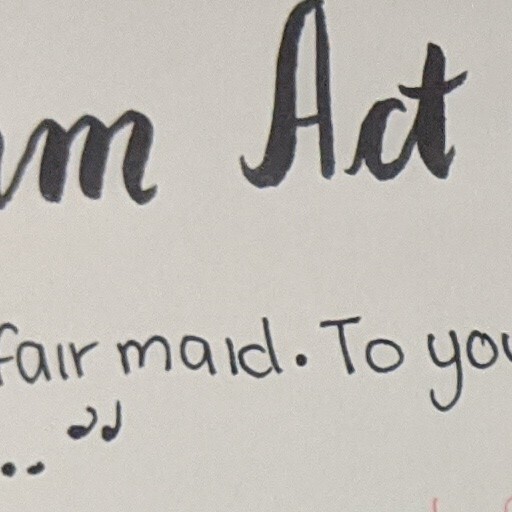 m Act
fair maid. To you
.."